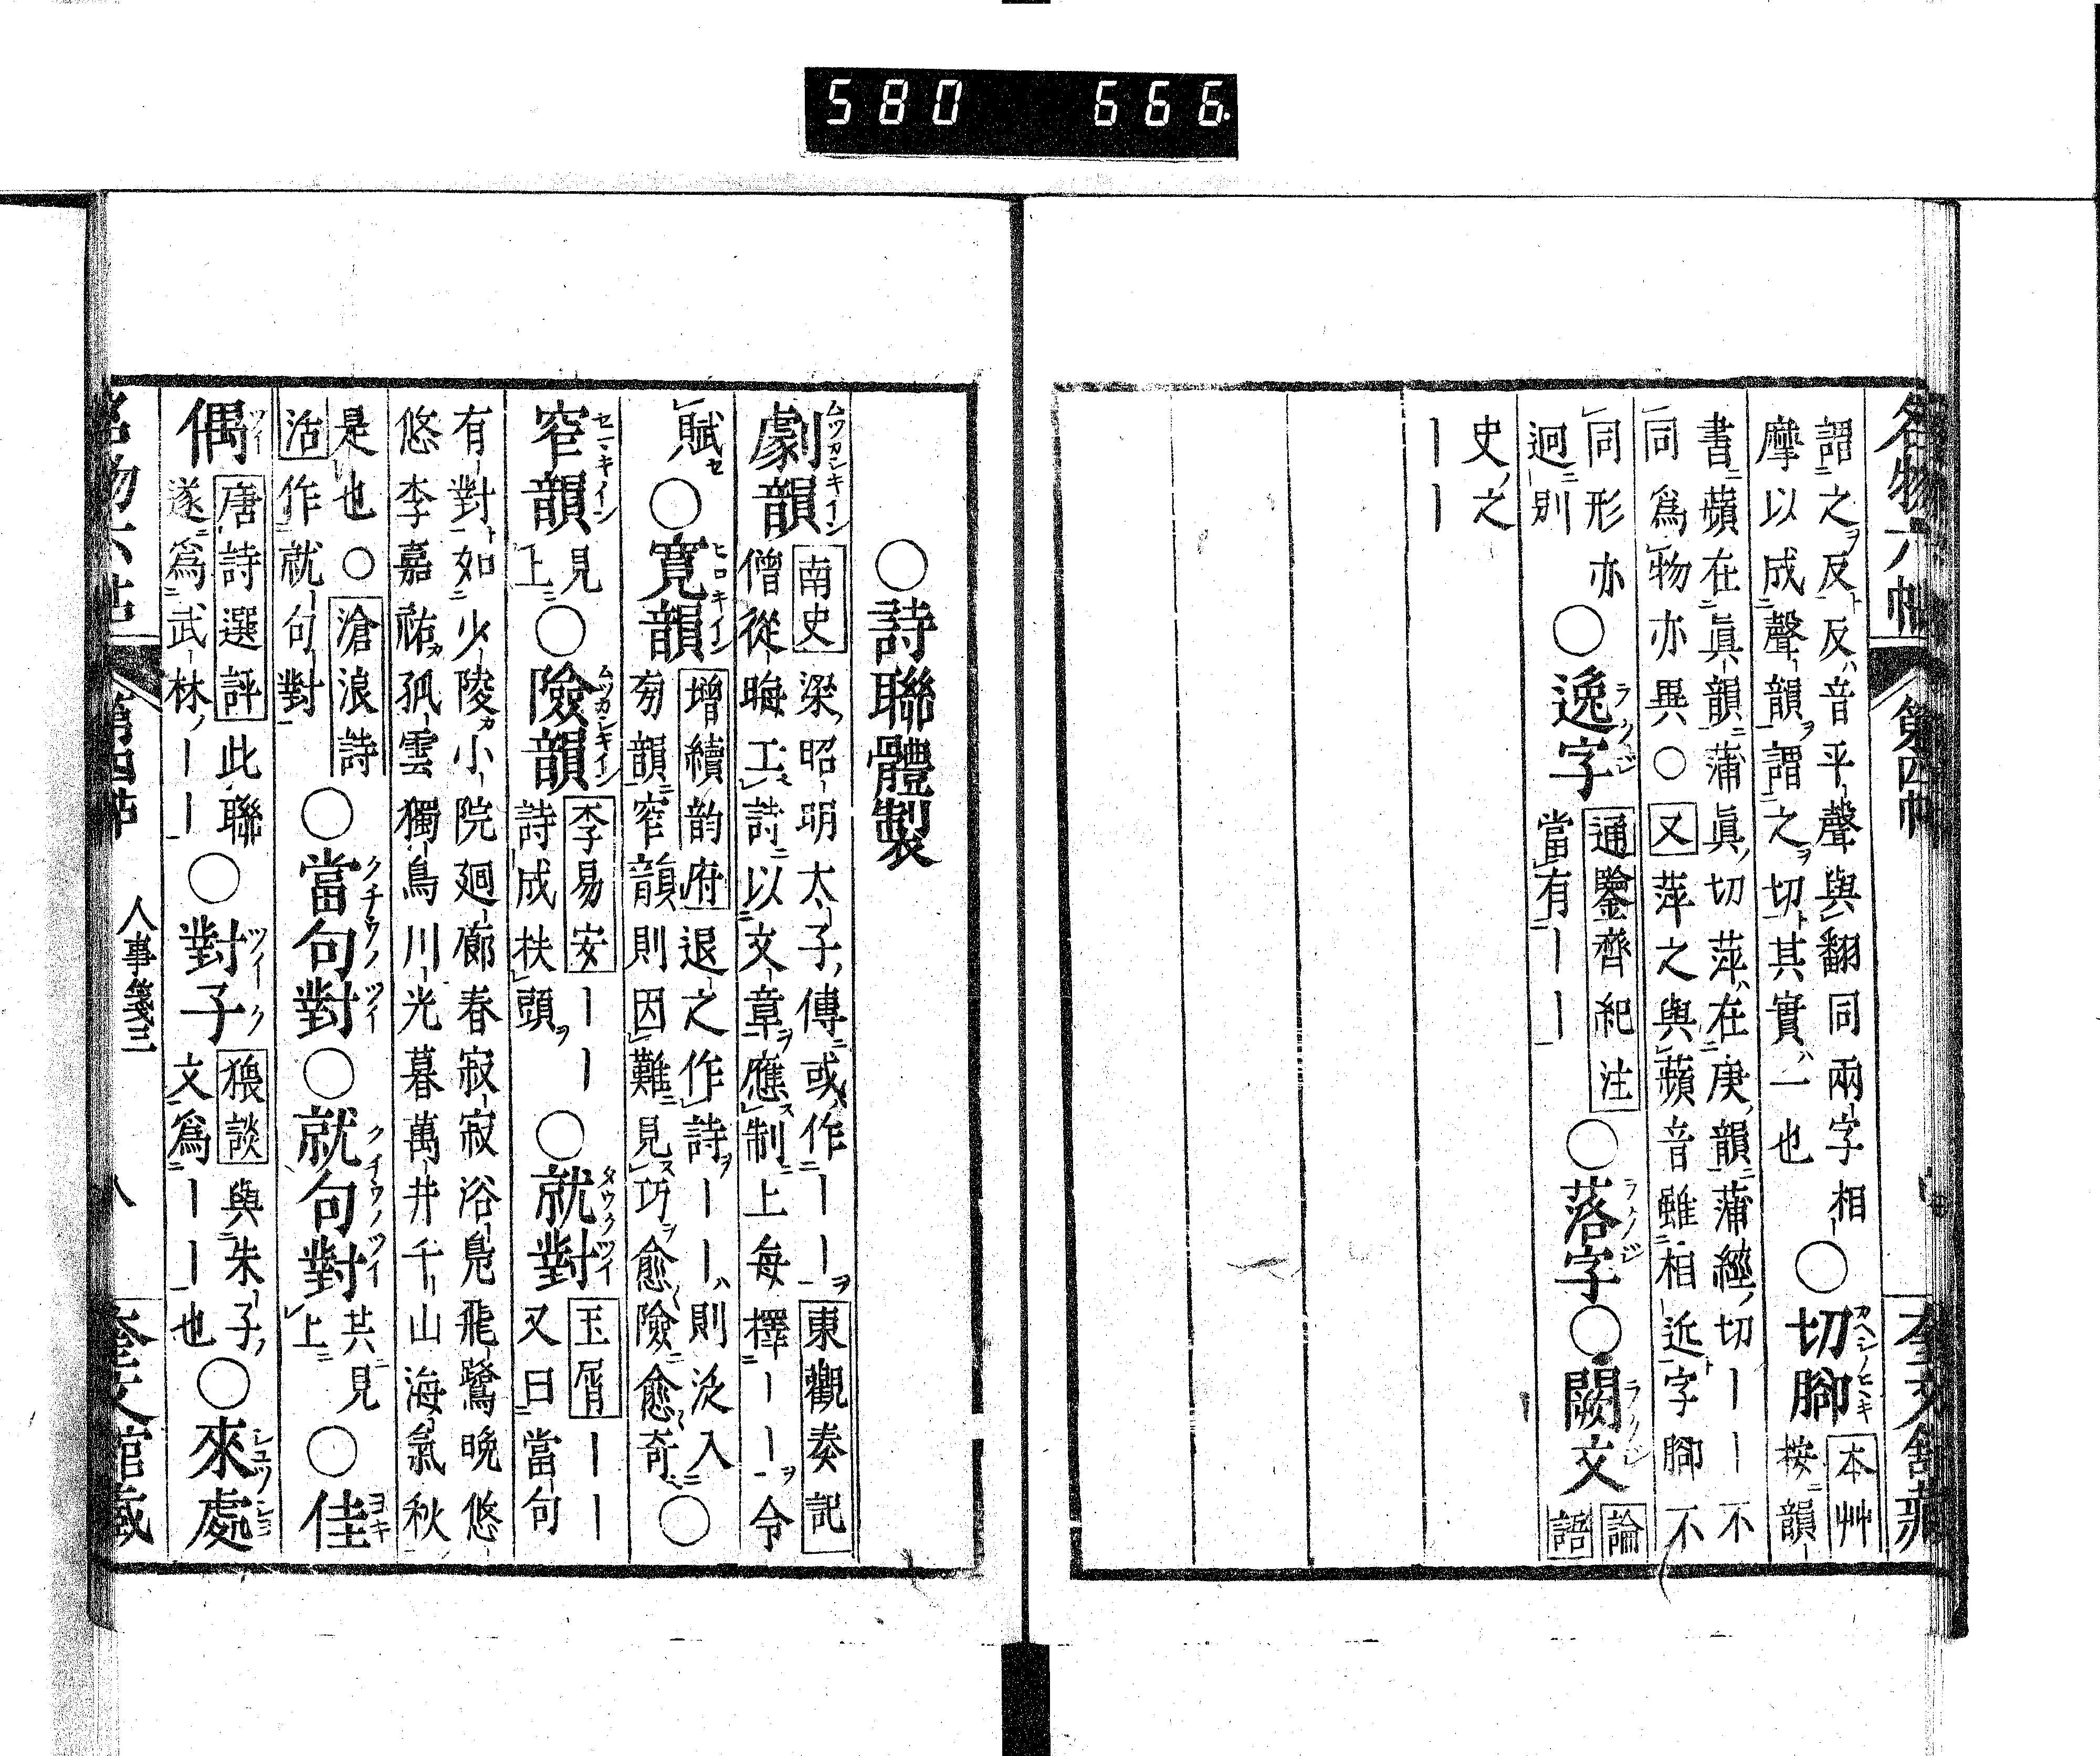 580 666
名物六帖 第四帖 奎文館藏
謂之反反音平聲與翻同兩字相
摩以成聲韻謂之切其實一也
○切腳 本艸
按韻
書蘋在眞韻蒲眞切萍在庚韻蒲經切――不
同爲物亦異○又萍之與蘋音雖相近字腳不
同形亦
迥別
○逸字 通鑒齊紀注
當有――
○落字○闕文 論
語
史之
――
○詩聯體製
劇韻 南史梁昭明太子傳或作――東觀奏記
僧從晦工詩以文章應制上每擇――令
賦○寬韻 增續韵府退之作詩――則泛入
旁韻窄韻則因難見巧愈險愈奇○
窄韻 見
上
○險韻 李易安――
詩成扶頭
○就對 玉屑――
又曰當句
有對如少陵小院廻廊春寂寂浴鳧飛鷺晩悠
悠李嘉祐孤雲獨鳥川光暮萬井千山海氣秋
是也○滄浪詩
活作就句對
○當句對○就句對 共見
上
○佳
偶 唐詩選評此聯
遂爲武林――
○對子 猥談與朱子
文爲――也
○來處
名物六帖 第四帖 人事箋三 八 奎文館藏